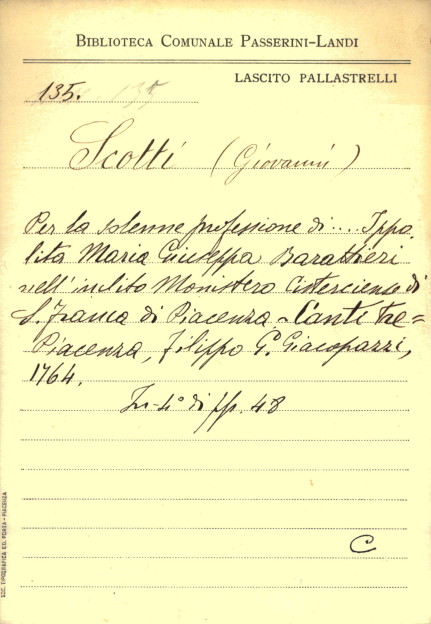 BIBLIOTECA COMUNALE PASSERINI-LANDI
LASCITO PALLASTRELLI
135. 135
Scotti (Giovanni)
Per la solenne professione di.... Ippo,
lita Maria Giuseppa Barattieri
nell'inclito Monistero Cisterciense di
S. Franca di Piacenza - Canti tre =
Piacenza, Filippo G. Giacopazzi,
1764.
In-4° di pp. 48
C
SOC. TIPOGRAFICA ED. PORTA - PIACENZA